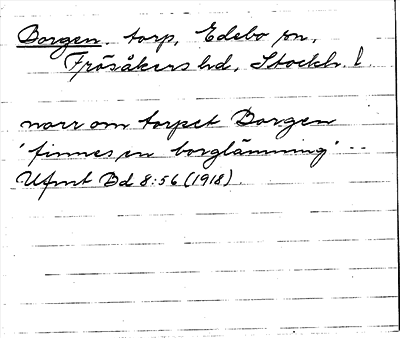 Borgen, torp, Edebo sn,
Frösåkers hd, Stockh. l.
norr om torpet Borgen
"finnes en borglämning" --
Ufmt Bd 8:56 (1918).